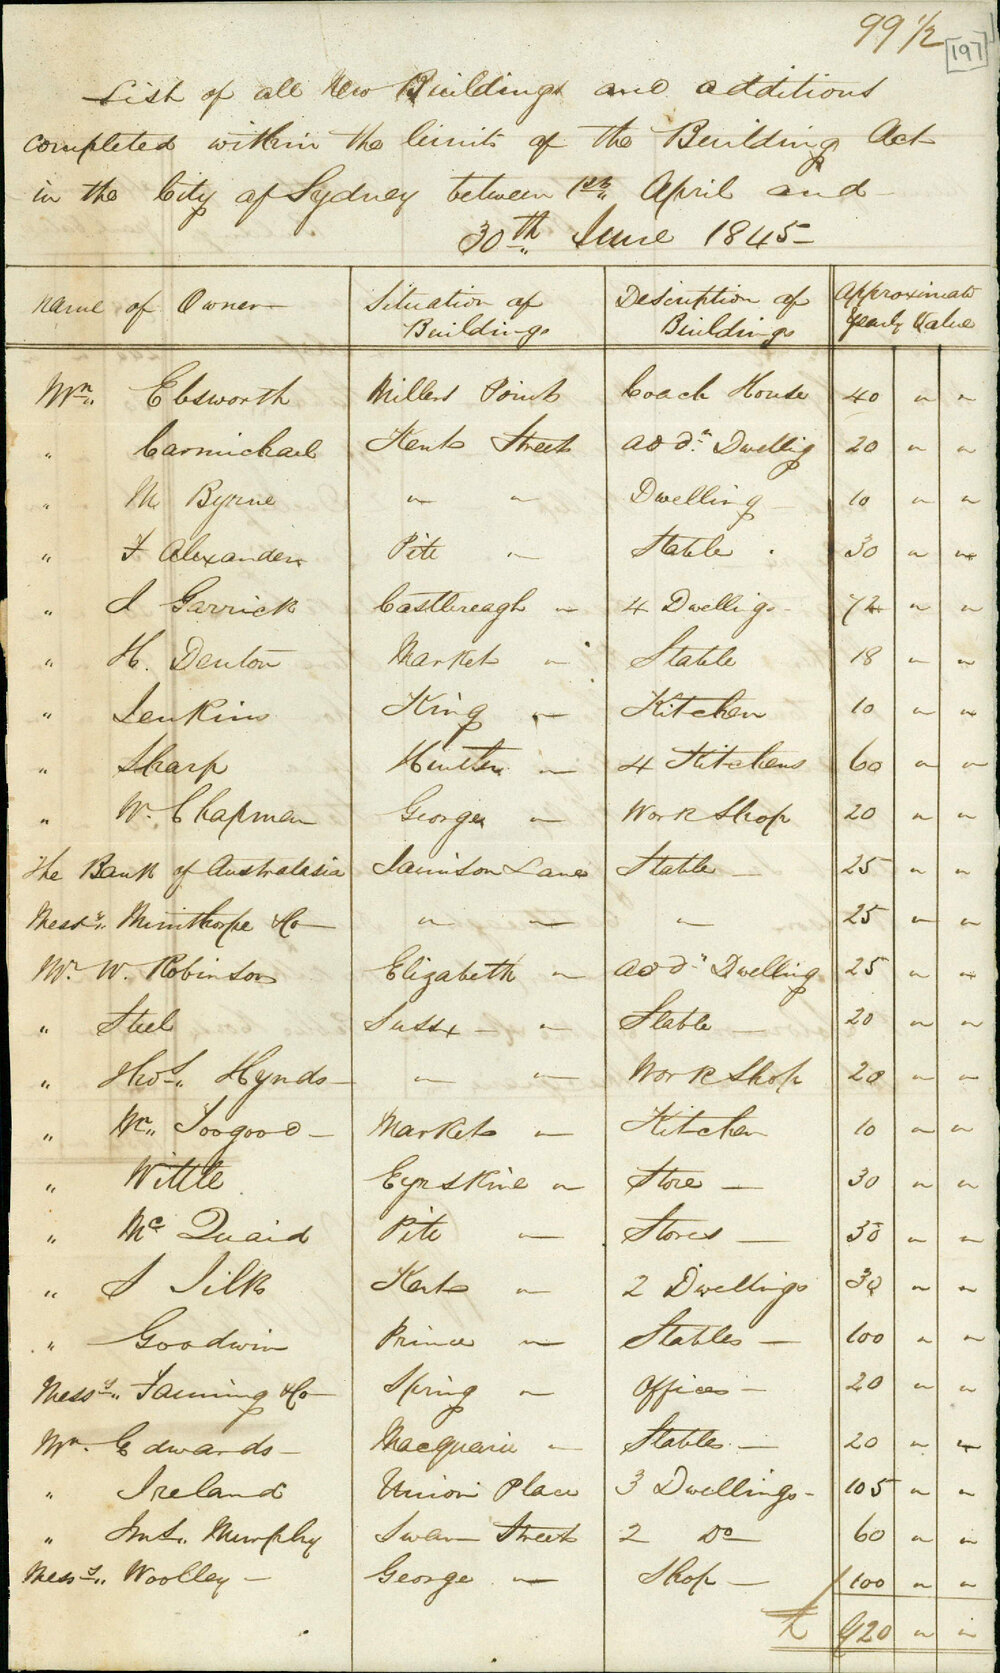 99 1/2
[197]
List of all New Buildings and additions
completed within the limits of the Building Act
in the City of Sydney between 1st April and
30th June 1845
Name of Owner | Situation of Buildings | Description of Buildings | Approximate Yearly Value
Mr. Ebsworth | Millers Point | Coach House | 40 " "
" Carmichael | Kent Street | add.n Dwellig | 20 " "
" M Byrne | " " | Dwelling | 10 " "
" F Alexander | Pitt " | Stable | 30 " "
" J Garrick | Castlereagh " | 4 Dwelligs | 72 " "
" H. Denton | Market " | Stable | 18 " "
" Jenkins | King " | Kitchen | 10 " "
" Sharp | Hunter " | 4 Kitchens | 60 " "
" W. Chapman | George " | Work Shop | 20 " "
The Bank of Australasia | Jamison Lane | Stable | 25 " "
Messrs. Minithorpe & Co | " " | " | 25 " "
Mr. W. Robinson | Elizabeth " | add.n Dwelling | 25 " "
" Steel | Sussx " | Stable | 20 " "
" Thos. Hynds | " " | Work Shop | 20 " "
" Mr. Toogood | Market " | Kitchen | 10 " "
" Wittle | Eyrskine " | Store | 30 " "
" Mc Quaid | Pitt " | Stores | 30 " "
" J Silk | Kent " | 2 Dwellings | 30 " "
" Goodwin | Prince " | Stables | 100 " "
Messrs. Fanning & Co | Spring " | Offices | 20 " "
Mr. Edwards | Macquarie " | Stables | 20 " "
" Ireland | Union Place | 3 Dwellings | 105 " "
" Murphy | Swan Street | 2 Do | 60 " "
Messrs. Woolley | George " | Shop | 100 " "
£ 920 " "